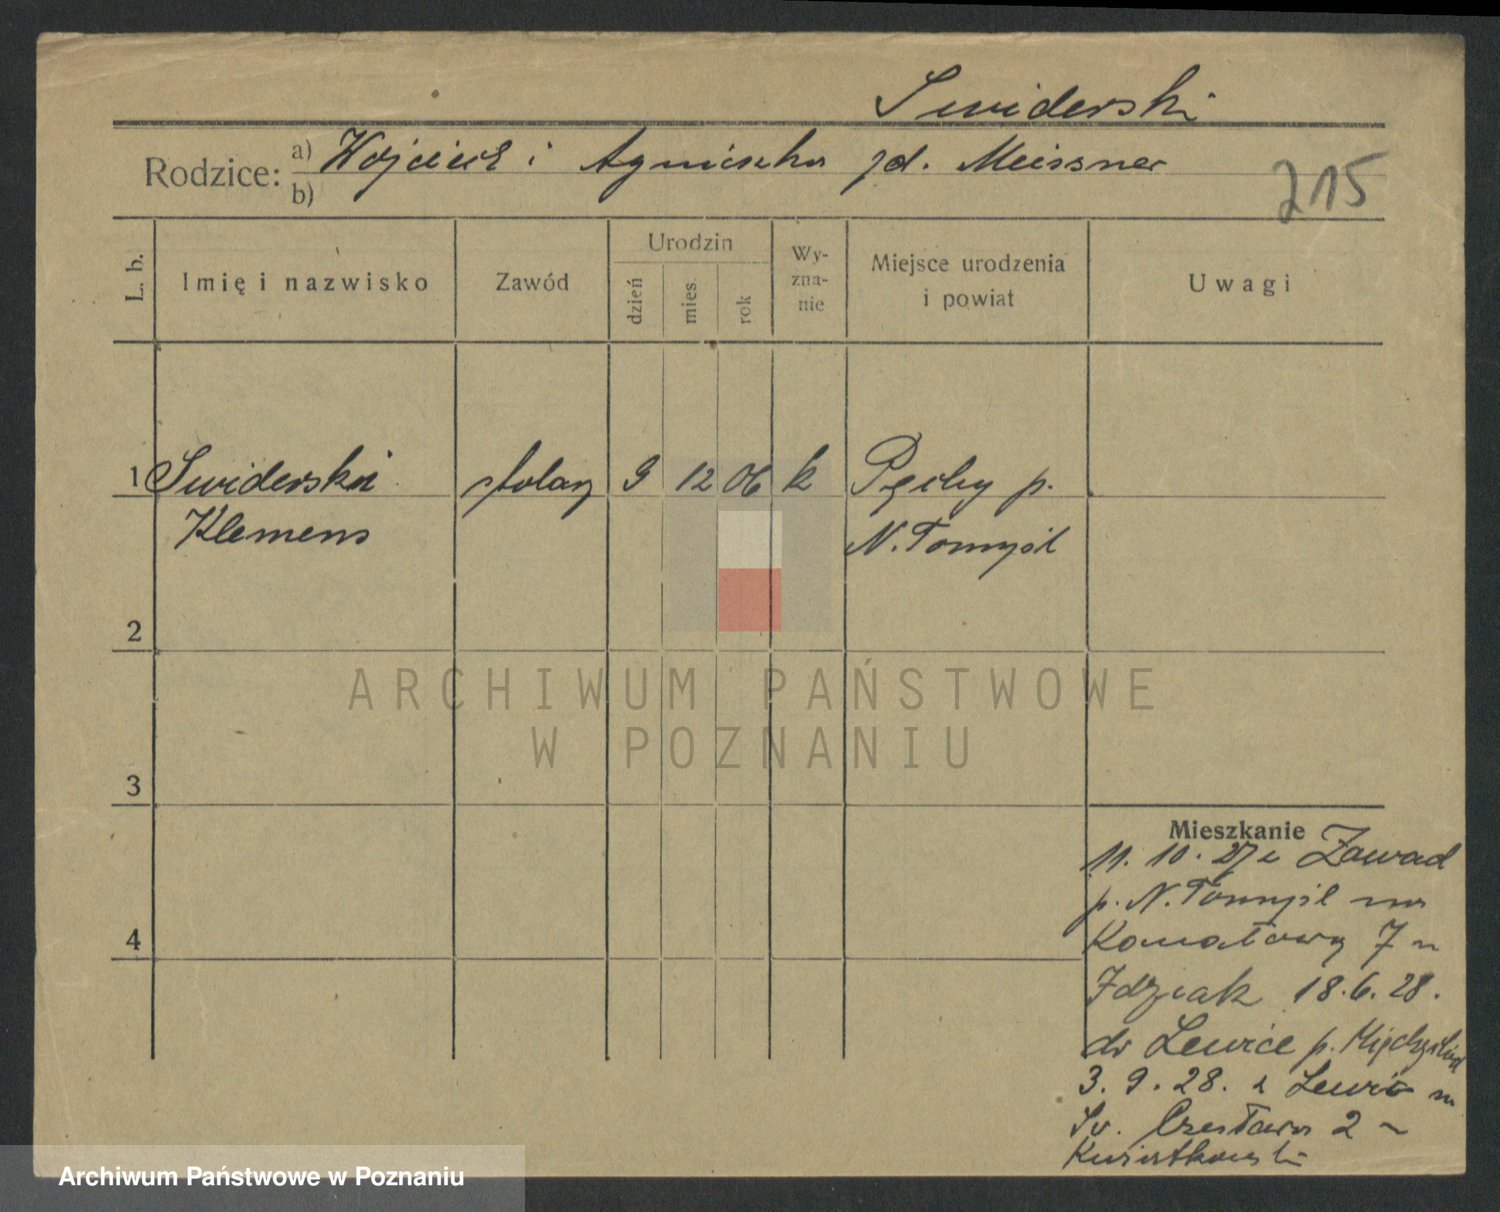 Swiderski
Rodzice: a) Wojciech i Agnieszka zd. Meissner
b)
215
L. b.
Imię i nazwisko
Zawód
Urodzin
dzień
mies.
rok
Wy-
zna-
nie
Miejsce urodzenia
i powiat
Uwagi
1 Swiderski stolarz 9 12 06 k p.
Klemens N. Tomyśl
2
ARCHIWUM PAŃSTWOWE
W POZNANIU
3
Mieszkanie
11. 10. 27 z Zawad
p. N. Tomyśl na
4
7
Idziak 18. 6. 28.
do Lewice p.
3. 9. 28. z Lewic
Św. Czesława 2
Kwiatkowski
Archiwum Państwowe w Poznaniu